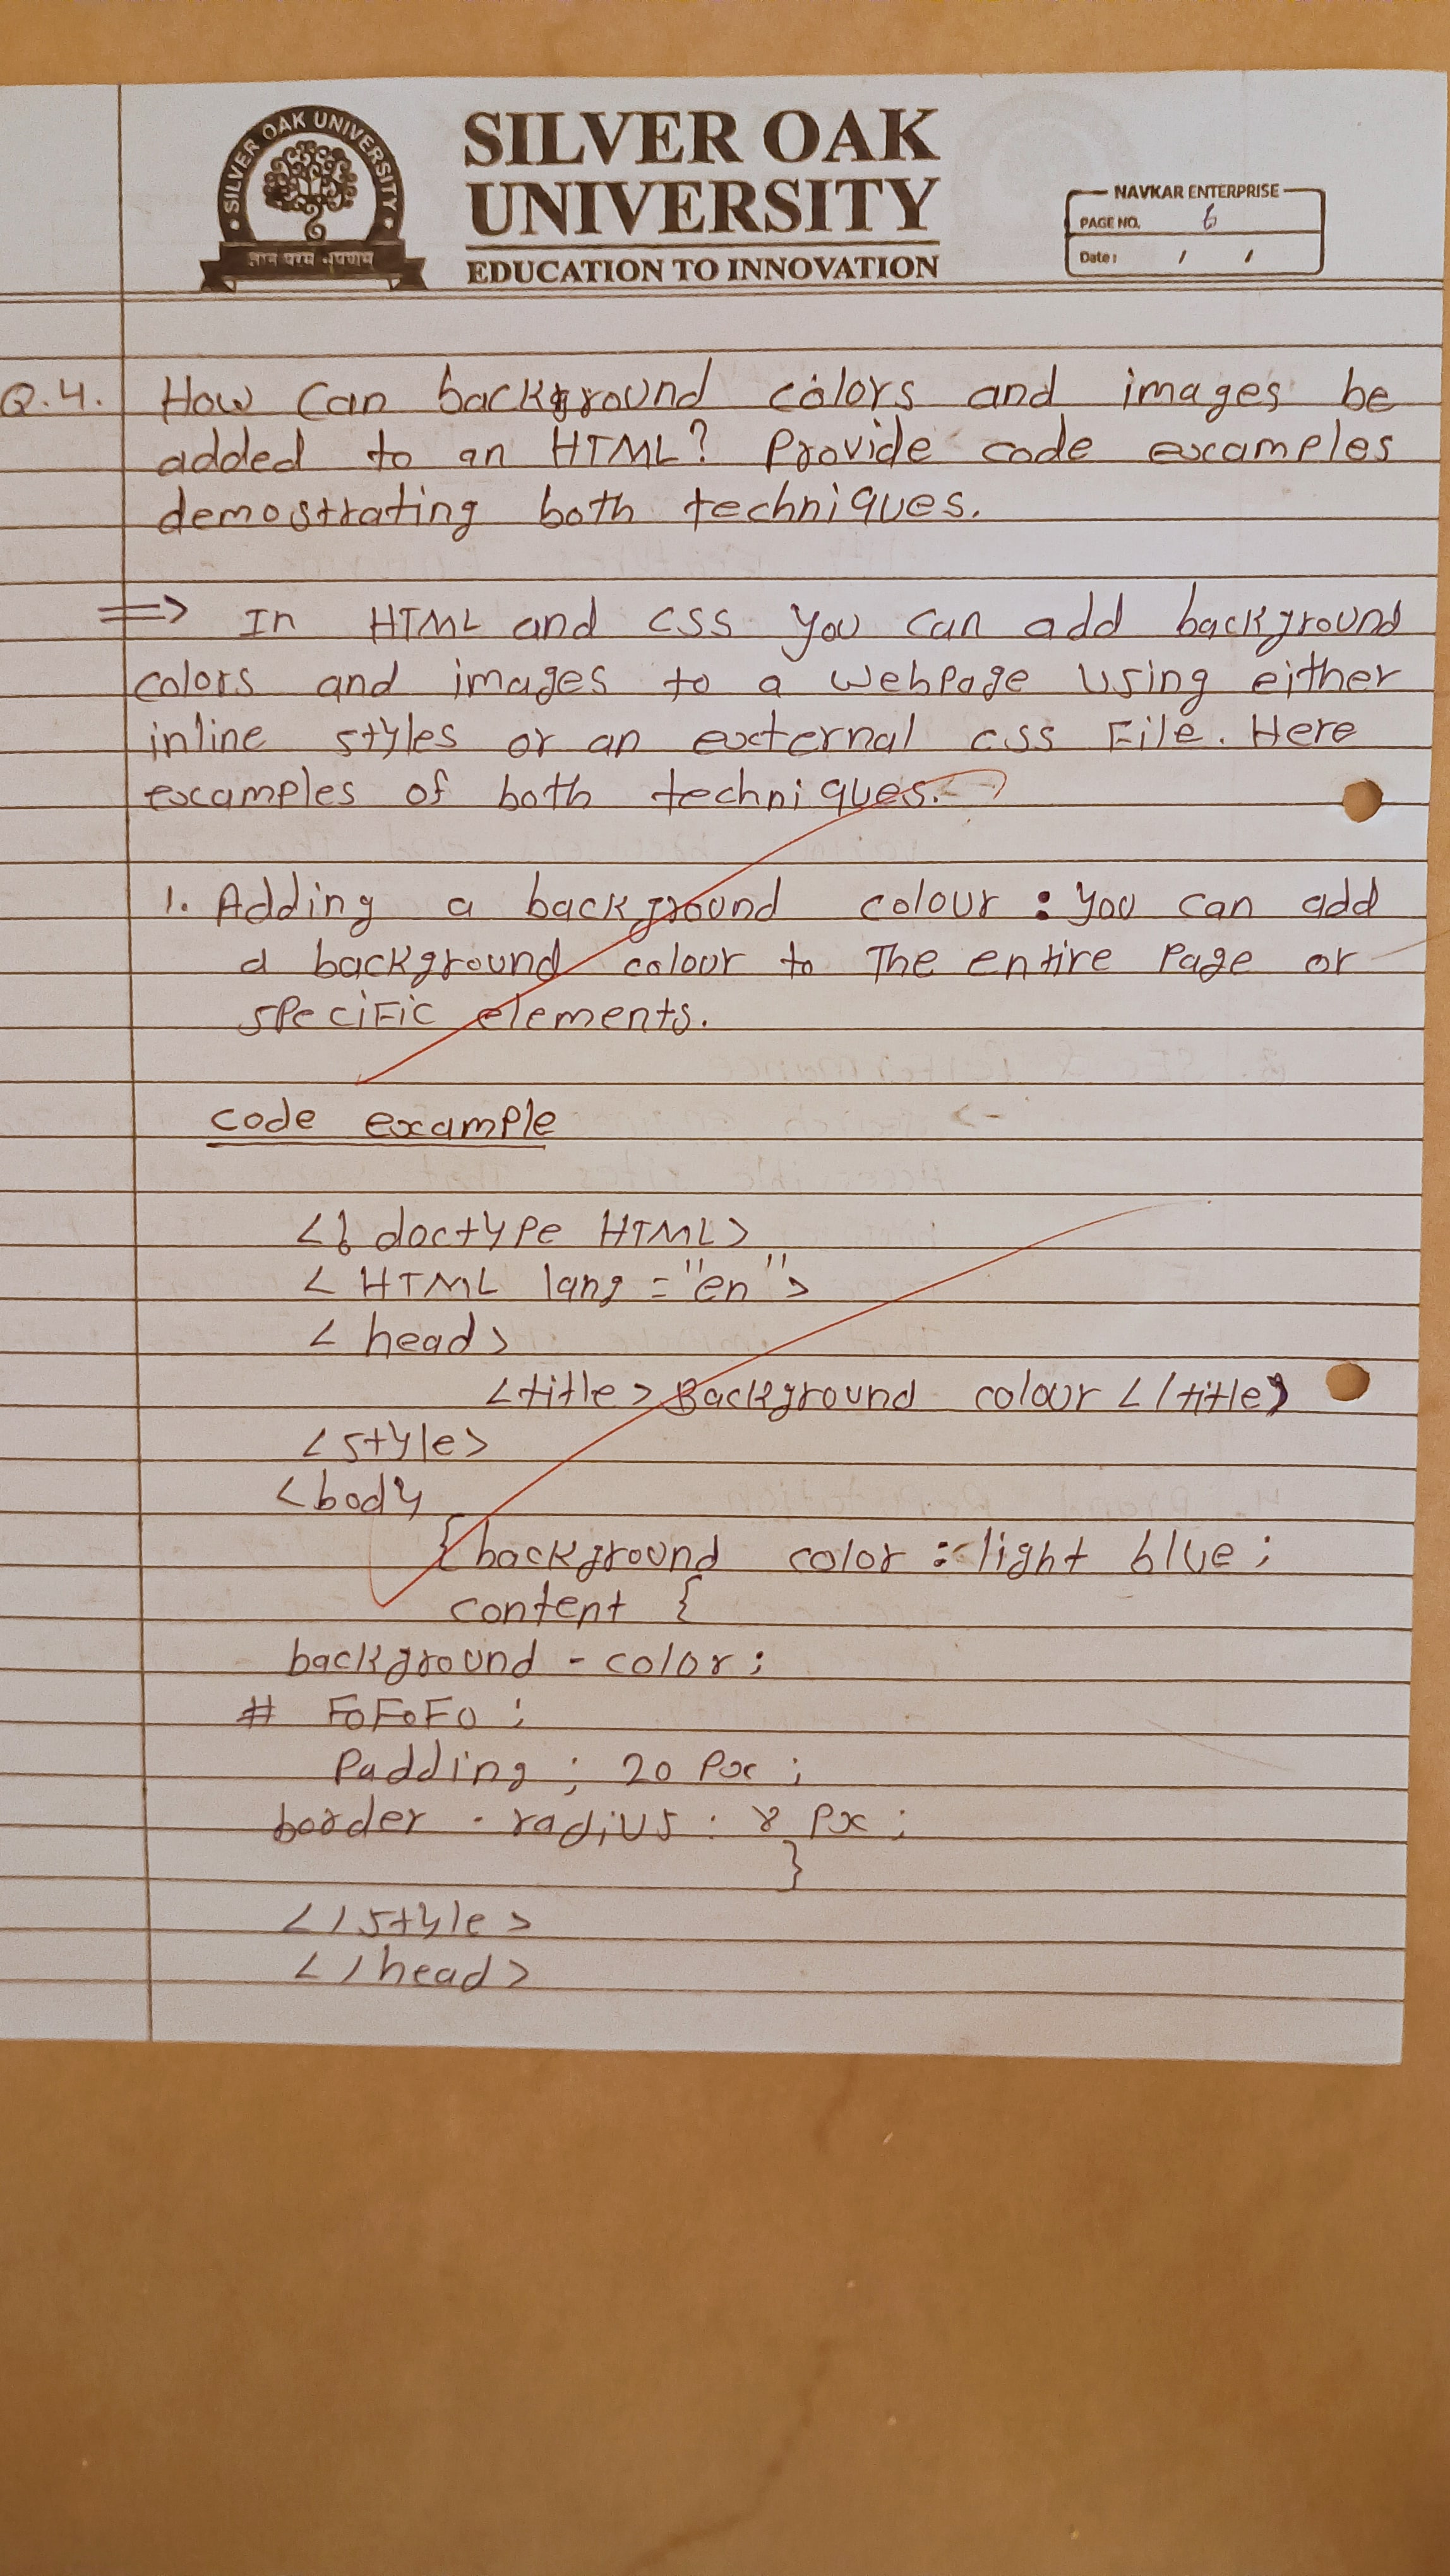 SILVER OAK UNIVERSITY
ज्ञान परमं भूषणम्
SILVER OAK
UNIVERSITY
EDUCATION TO INNOVATION
NAVKAR ENTERPRISE
PAGE NO. 6
Date: / /
Q.4. How Can background colors and images be
added to an HTML? Provide code examples
demostrating both techniques.
⇒ In HTML and CSS you can add background
colors and images to a webpage using either
inline styles or an external css File. Here
examples of both techniques.
1. Adding a background colour : you can add
a background colour to The entire Page or
specific elements.
code example
<! doctype HTML>
< HTML lang = "en">
< head>
<title> Background colour </title>
<style>
<body
{ background color : light blue ;
content {
background - color :
# F0F0F0 ;
Padding ; 20 Px ;
border - radius : 8 Px ;
}
</style>
</head>